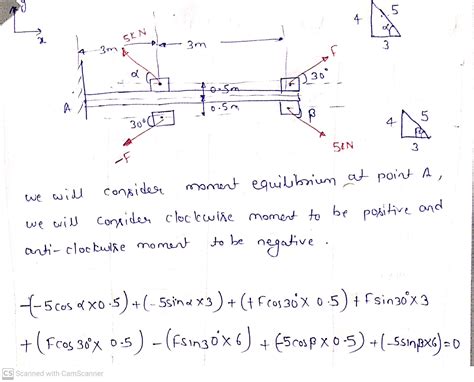 y
x
4 5
α
3
5kN
3m 3m
F
α 30°
0.5m
A
0.5m
30° β
-F
5kN
4 5
β
3
we will consider moment equilibrium at point A,
we will consider clockwise moment to be positive and
anti-clockwise moment to be negative.
-(-5cosα×0.5)+(-5sinα×3)+(+Fcos30°×0.5)+Fsin30°×3
+(Fcos30°×0.5)-(Fsin30°×6)+(-5cosβ×0.5)+(-5sinβ×6)=0
CS Scanned with CamScanner